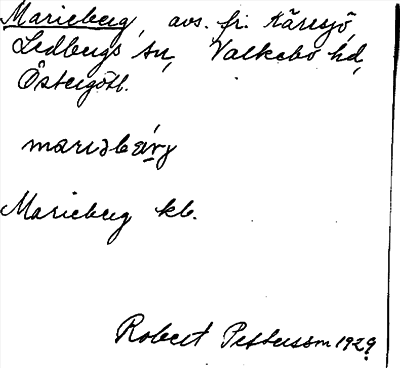 Marieberg, avs. fr. Käresjö,
Ledbergs sn, Valkebo hd,
Östergötl.
marıəbærj
Marieberg kb.
Robert Pettersson 1929